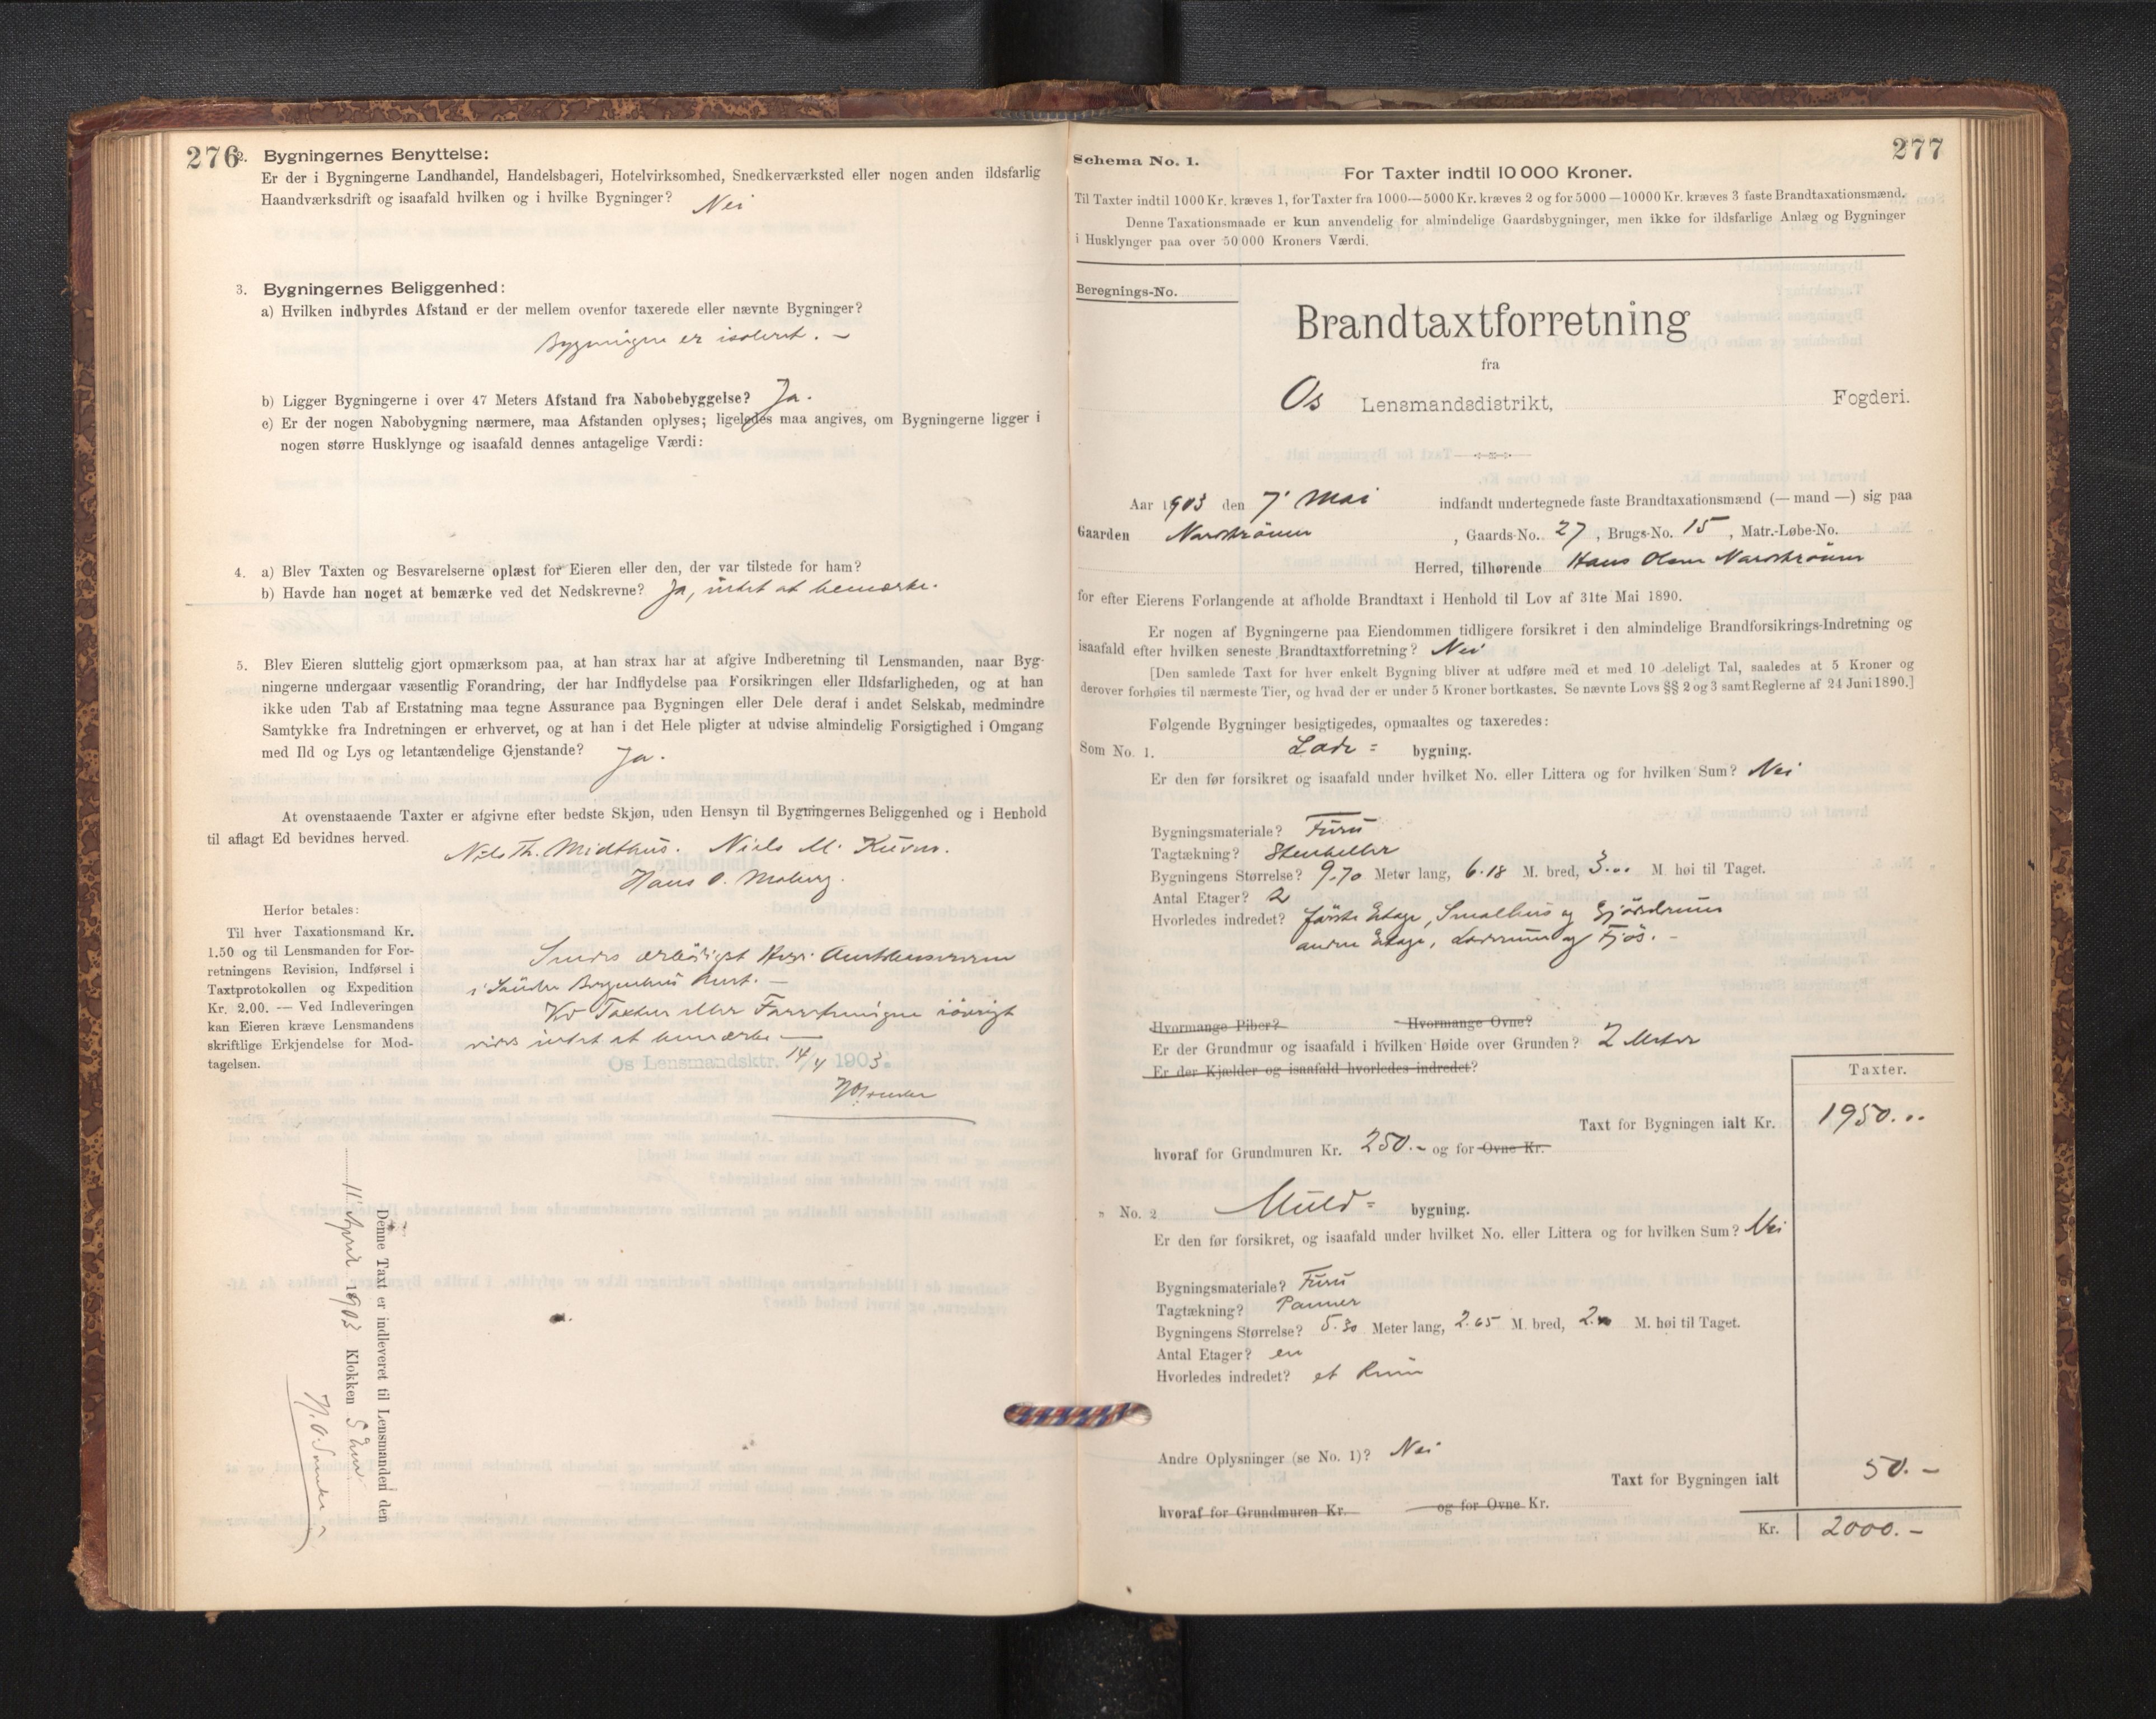 276
2. Bygningernes Benyttelse:
Er der i Bygningerne Landhandel, Handelsbageri, Hotelvirksomhed, Snedkerværksted eller nogen anden ildsfarlig
Haandværksdrift og isaafald hvilken og i hvilke Bygninger? Nei
3. Bygningernes Beliggenhed:
a) Hvilken indbyrdes Afstand er der mellem ovenfor taxerede eller nævnte Bygninger?
Bygningen er isoleret. —
b) Ligger Bygningerne i over 47 Meters Afstand fra Nabobebyggelse? Ja.
c) Er der nogen Nabobygning nærmere, maa Afstanden oplyses; ligeledes maa angives, om Bygningerne ligger i
nogen større Husklynge og isaafald dennes antagelige Værdi:
4. a) Blev Taxten og Besvarelserne oplæst for Eieren eller den, der var tilstede for ham?
b) Havde han noget at bemærke ved det Nedskrevne? Ja, intet at bemærke.
5. Blev Eieren sluttelig gjort opmærksom paa, at han strax har at afgive Indberetning til Lensmanden, naar Byg-
ningerne undergaar væsentlig Forandring, der har Indflydelse paa Forsikringen eller Ildsfarligheden, og at han
ikke uden Tab af Erstatning maa tegne Assurance paa Bygningen eller Dele deraf i andet Selskab, medmindre
Samtykke fra Indretningen er erhvervet, og at han i det Hele pligter at udvise almindelig Forsigtighed i Omgang
med Ild og Lys og letantændelige Gjenstande? Ja.
At ovenstaaende Taxter er afgivne efter bedste Skjøn, uden Hensyn til Bygningernes Beliggenhed og i Henhold
til aflagt Ed bevidnes herved.
Nils Th. Midthus. Niels M. Kuven.
Hans O. Moberg.
Herfor betales:
Til hver Taxationsmand Kr.
1.50 og til Lensmanden for For-
retningens Revision, Indførsel i
Taxtprotokollen og Expedition
Kr. 2.00. — Ved Indleveringen
kan Eieren kræve Lensmandens
skriftlige Erkjendelse for Mod-
tagelsen.
Sendes ærbödigst Herr
i Söndre Bergenhus Amt. —
Ved Taxten eller Forretningen iövrigt
vides intet at bemærke —
Os Lensmandsktr. 14/4 1903.
Denne Taxt er indleveret til Lensmanden den
11' April 1903 Klokken 5
277
Schema No. 1.
For Taxter indtil 10 000 Kroner.
Til Taxter indtil 1000 Kr. kræves 1, for Taxter fra 1000—5000 Kr. kræves 2 og for 5000—10000 Kr. kræves 3 faste Brandtaxationsmænd.
Denne Taxationsmaade er kun anvendelig for almindelige Gaardsbygninger, men ikke for ildsfarlige Anlæg og Bygninger
i Husklynger paa over 50 000 Kroners Værdi.
Beregnings-No.
Brandtaxtforretning
fra
Os Lensmandsdistrikt, Fogderi.
Aar 1903 den 7' Mai indfandt undertegnede faste Brandtaxationsmænd (— mand —) sig paa
Gaarden Narströnen, Gaards-No. 27, Brugs-No. 15, Matr.-Løbe-No.
Herred, tilhørende Hans Olsen Narströnen
for efter Eierens Forlangende at afholde Brandtaxt i Henhold til Lov af 31te Mai 1890.
Er nogen af Bygningerne paa Eiendommen tidligere forsikret i den almindelige Brandforsikrings-Indretning og
isaafald efter hvilken seneste Brandtaxtforretning? Nei
[Den samlede Taxt for hver enkelt Bygning bliver at udføre med et med 10 deleligt Tal, saaledes at 5 Kroner og
derover forhøies til nærmeste Tier, og hvad der er under 5 Kroner bortkastes. Se nævnte Lovs §§ 2 og 3 samt Reglerne af 24 Juni 1890.]
Følgende Bygninger besigtigedes, opmaaltes og taxeredes:
Som No. 1. Lade = bygning.
Er den før forsikret og isaafald under hvilket No. eller Littera og for hvilken Sum? Nei
Bygningsmateriale? Furu
Tagtækning? Stenheller
Bygningens Størrelse? 9.70 Meter lang, 6.18 M. bred, 3.00 M høi til Taget.
Antal Etager? 2
Hvorledes indredet? förste Etage, Smalhus og Gjödselrum
anden Etage, Laderum og Fjös. —
Hvormange Piber? Hvormange Ovne?
Er der Grundmur og isaafald i hvilken Høide over Grunden? 2 Meter
Er der Kjælder og isaafald hvorledes indredet?
Taxter.
Taxt for Bygningen ialt Kr. 1950.00
hvoraf for Grundmuren Kr. 250.— og for Ovne Kr.
" No. 2 Muld = bygning.
Er den før forsikret, og isaafald under hvilket No. eller Littera og for hvilken Sum? Nei
Bygningsmateriale? Furu
Tagtækning? Panner
Bygningens Størrelse? 5.30 Meter lang, 2.65 M. bred, 2.00 M. høi til Taget.
Antal Etager? en
Hvorledes indredet? et Rum
Andre Oplysninger (se No. 1)? Nei
Taxt for Bygningen ialt 50.—
hvoraf for Grundmuren Kr. og for Ovne Kr.
Kr. 2000.—